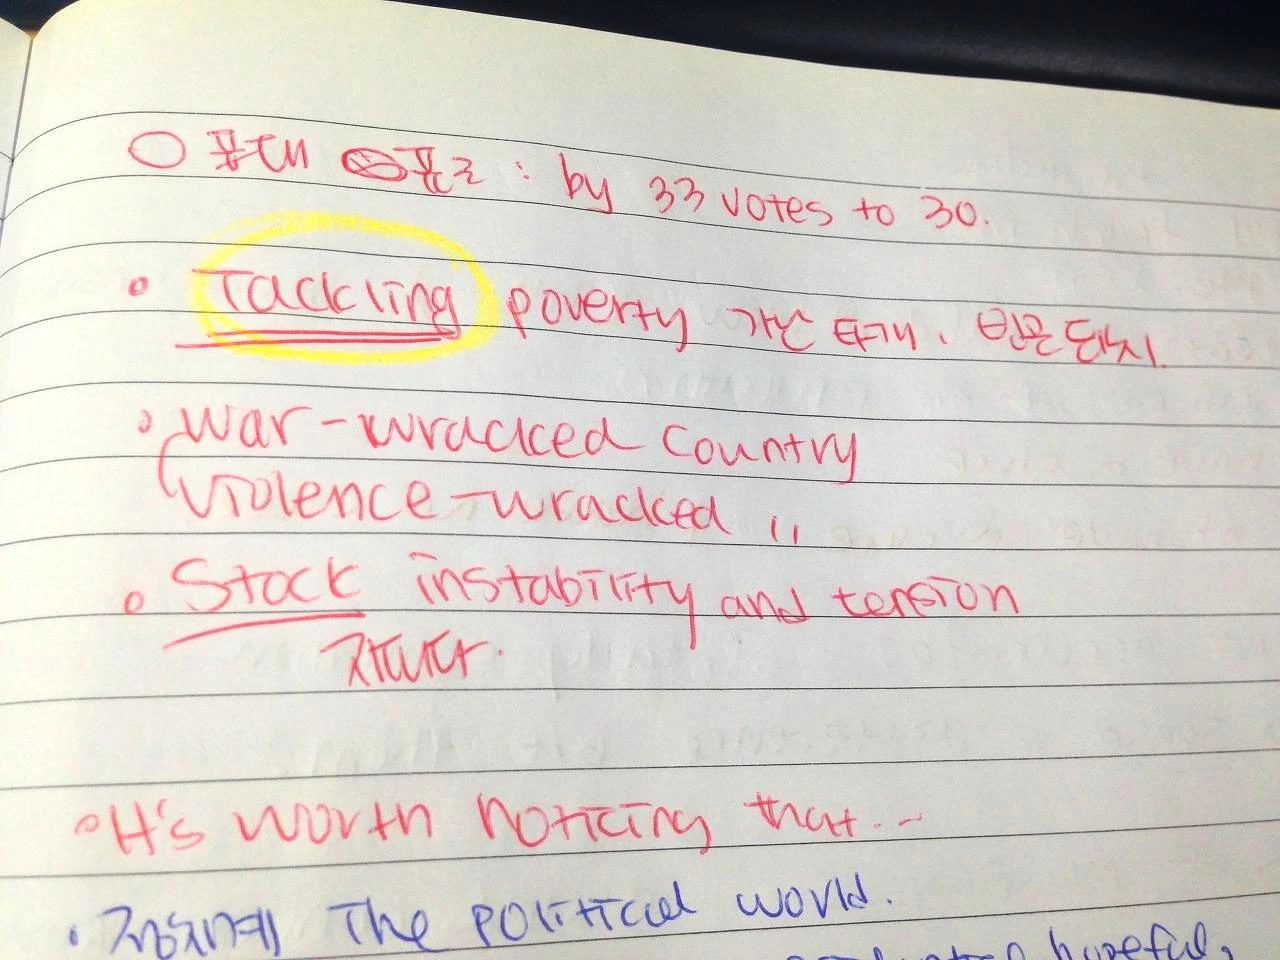 ○ 표대 표로 : by 33 votes to 30.
· Tackling poverty 가난 타개, 빈곤퇴치.
· war-wracked country
violence-wracked "
· Stock instability and tension
재다.
· It's worth noticing that...
· 정치계 The political world.
hopeful,